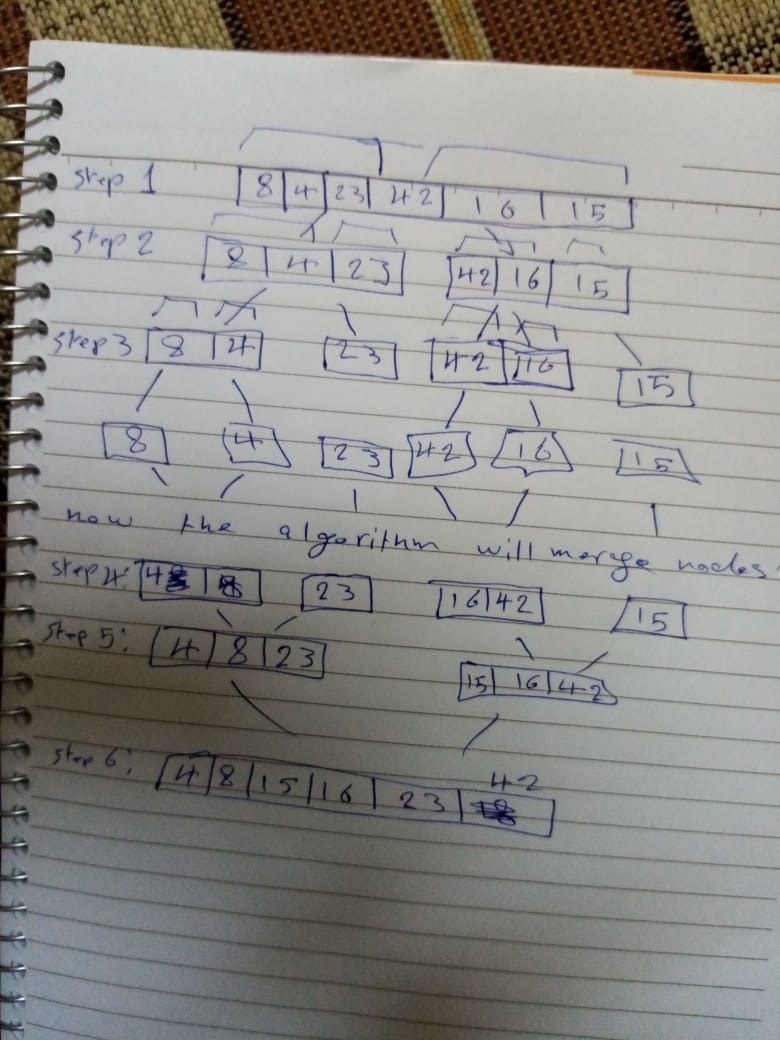 step 1 8 4 23 42 16 15
step 2 8 4 23 42 16 15
step 3 8 4 23 42 16 15
8 4 23 42 16 15
now the algorithm will merage nodes:
step 4: 4 8 23 16 42 15
step 5: 4 8 23 15 16 42
42
step 6: 4 8 15 16 23